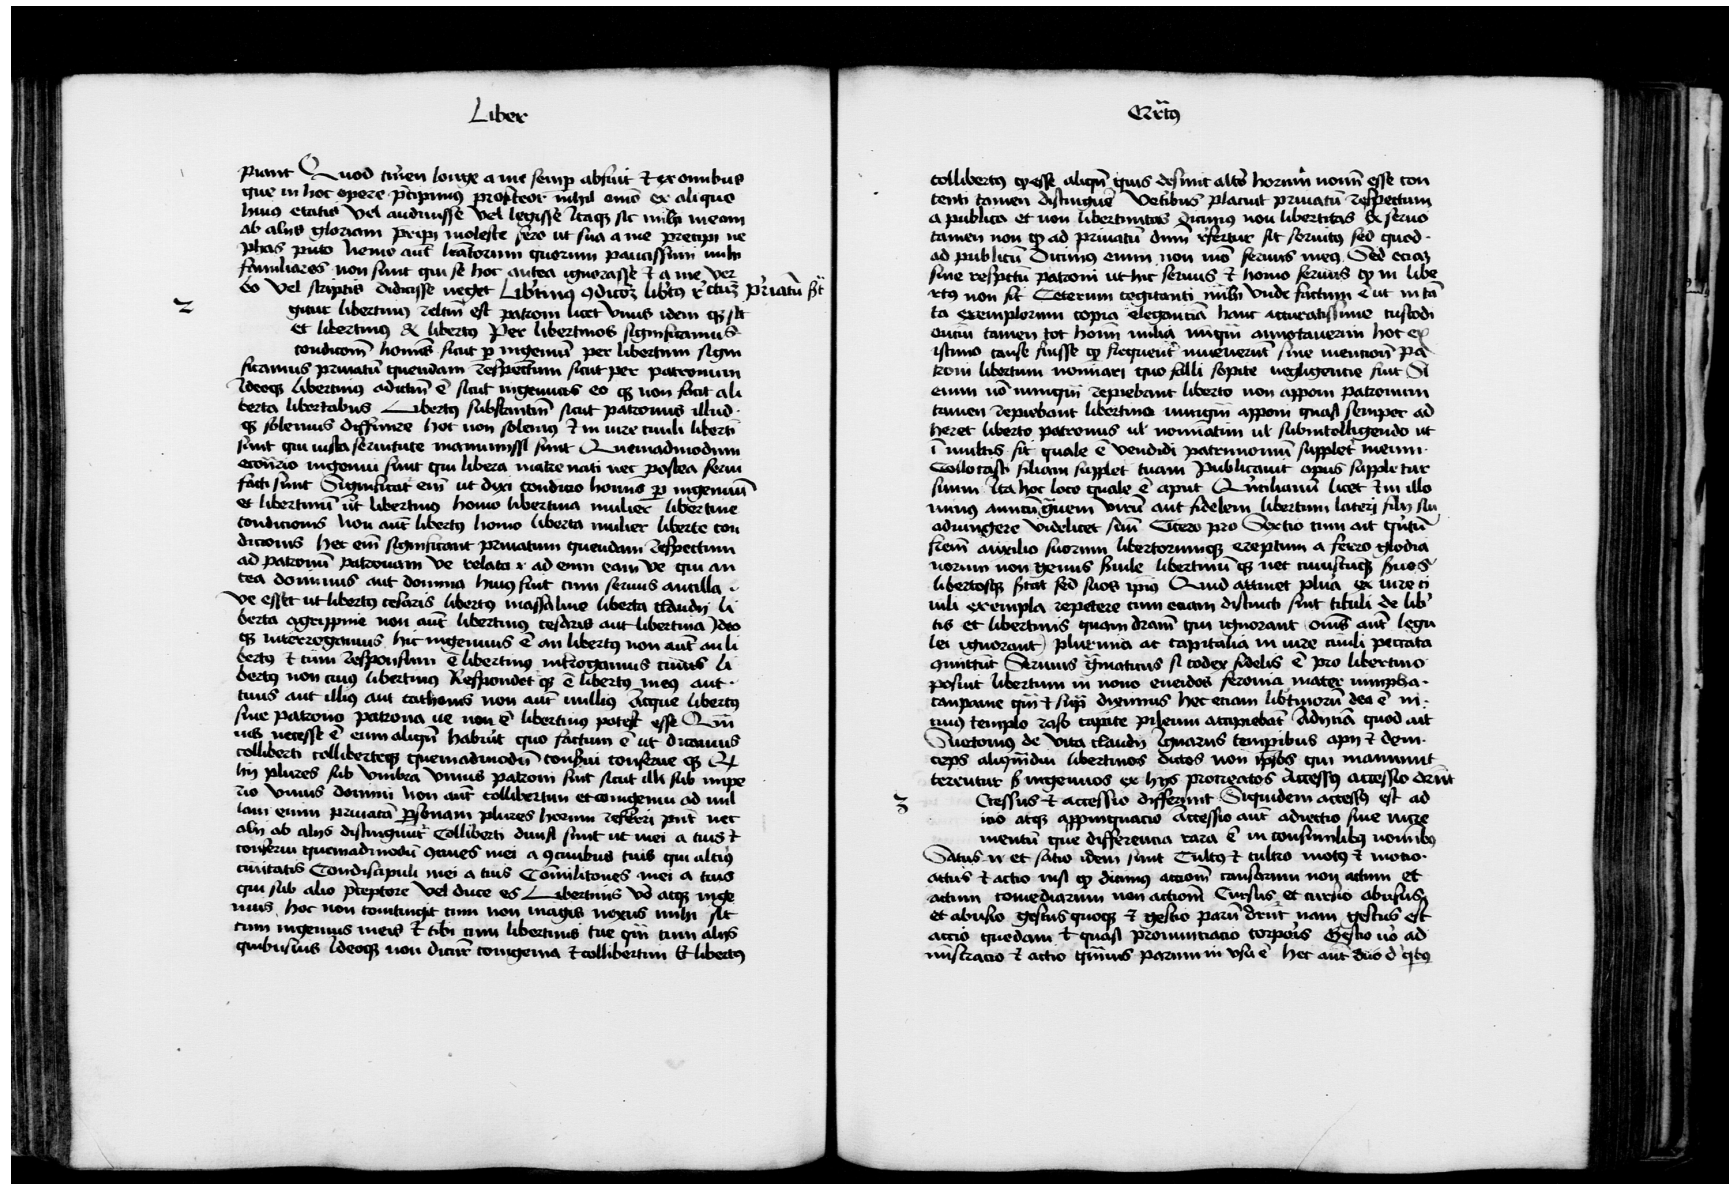 Liber
piant Quod tn̄en longe a me semp̲ absuit & ex omnibus
que in hoc opere p̄cipimus profiteor nihil omīo ex aliquo
huius etatis vel audiuisse vel legisse Itaq̨ sic mihi meam
ab alijs gloriam p̄ripi moleste fero ut sua a me precipi ne
phas puto Nemo aut̄ litr̄atorum quorum paucissimi mihi
familiares non sunt qui se hoc antea ignorasse & a me ver
bo vel scriptis didicisse neget
2
gitur libertinus relatīu est patroni licet vnius idem q̨ sit
et libertinus & libertꝰ Per libertinos significamus
condicōem hominis sicut p̲ ingenuū per libertum signi
ficamus priuatū quendam respectum sicut per patronum
Ideoq̨ libertinus adiectiū ē sicut ingenuus eo q̨ non facit ali
berta libertabus Libertꝰ substantiuū sicut patronus illud
q̨ solemus diffinire hoc non solemus & in iure ciuili liberti
sunt qui iusta seruitute manumissi sunt Quemadmodum
econtrario ingenui sunt qui libera matre nati nec postea serui
facti sunt Significat̄ em̄ ut dixi condicio hominis p̲ ingenuū
et libertinū ut libertinus homo libertina mulier libertine
condicionis Non aut̄ libertꝰ homo liberta mulier liberte con
dicionis hec em̄ significant priuatum quendam respectum
ad patronū patronam ve relata ad eum eam ve qui an
tea dominus aut domina huius fuit cum seruus ancilla
ve esset ut libertꝰ cesaris libertꝰ massaline liberta claudij li
berta agrippine non aut̄ libertinus cesaris aut libertina Ideo
q̨ interrogamus hic ingenuus ē an libertꝰ non aut̄ an li
bertꝰ & cum responsum ē libertinus interogamus cuius li
bertꝰ non cuius libertinus Respondet q̨ ē libertꝰ meꝰ aut
tuus aut illius aut cathonis non aut̄ nullius Atque libertꝰ
sine patrono patrona ue non ē libertinus potest esse
necesse ē eum aliqn̄ habuit quo factum ē ut dicamus
colliberti colliberteq̨ quemadmodū conserui conserue q̨
hij plures sub vmbra vnius patroni sint sicut illi sub impe
rio vnius domini Non aut̄ collibertini et coingenui ad nul
lam enim priuatā p̲sonam plures horum referri pn̄t nec
alij ab alijs distinguūt Colliberti diuisi sunt ut mei a tuis &
conserui quemadmodū ꝯciues mei a ꝯciuibus tuis qui altiꝰ
ciuitatis Condiscipuli mei a tuis Comilitones mei a tuis
qui sub alio p̄ceptore vel duce es Libertinis vō atq̨ inge
nuis hoc non contingit cum non magis nexus mihi sit
cum ingenuis meis & tibi cum libertinis tue qm̄ cum alijs
quibusuis Ideoq̨ non dicit̄ coingenua & collibertini Et libertꝰ
Q̄rtꝰ
collibertꝰ q̲ esse aliqn̄ quis desinit horum nomī esse con
tenti tamen distinguē Veteribus placuit priuatū respectum
a publico et non libertinitas dicimus non libertitas & seruo
tamen non q̲ ad priuatū dnm̄ refertur sit seruitꝰ sed quod
ad publicū Dicimus enim non mō seruus meꝰ Sed eciam
sine respectu patroni ut hic seruus & homo seruus q̲ in libe
rtꝰ non sit Ceterum cogitanti mihi vnde factum ē ut in tā
ta exemplorum copia elegantiā hanc accuratissime custodi
encium tamen tot homī milia nūqm̄ annotauerim hoc ex
istimo cause fuisse q̲ frequent̄ inuenerūt sine mentione pa
troni libertum nominari quo falli sopite negligencie fuit Si
enim nō nunqm̄ repiebant liberto non apponi patronum
tamen repiebant libertino nunqm̄ apponi quasi semper ad
heret liberto patronus ul nominatim ul subintelligendo ut
ī multis sit quale ē vendidi patrimoniū supplet̄ meum
Collocasti filiam supplet tuam Publicauit opus suppletur
suum Ita hoc loco quale ē aput Qn̄tilianū licet & in illo
virū aut fidelem libertum lateri filij sui
adiungere videlicet suū Cicero pro Sextio cum ait q̄ntū
fr̄em auxilio suorum libertorumq̨ ereptum a ferro gladia
torum non genus seruile libertinū q̨ nec
libertosq̨ sed suos ipīus Quid attinet plura ex iure ci
uili exempla repetere cum eciam distincti sint tituli de lib̄
tis et libertinis quam dram̄ qui ignorant omīs aut̄ legu
lei ignorant plurima ac capitalia in iure ciuili peccata
Seruius gr̄maticus si codex fidelis ē pro libertino
posuit libertum in nono eneidos feronia mater nimpha
campanie qm̄ & supra diximus hec eciam lib̄tinorū dea ē in
cuius templo raso capite pileum accipiebāt Adiuciā quod ait
Suetonius de vita claudij Ignarus temp̲ibus apij & dein
ceps aliqm̄diu libertinos dictos non ip̄os qui manumit
terentur s̄ ingenuos ex hijs procreatos Accessꝰ accessio
3
Ccessus & accessio differūt Siquidem accessꝰ est ad
icio atq̨ appinquacio Accessio aut̄ adiectio siue incre
mentū que differencia rara ē in consimilibꝰ nominibꝰ
Satus n̄ et satio idem sunt Cultꝰ & cultio motꝰ & motio
actus & actio nisi q̲ dicimus accionē causarum non actum et
actum comediarum non actionē Cursus et cursio abusus
et abusio gestus quoq̨ & gestio parū nam gestus est
accio quedam & quasi pronunciacio corporis Gestio uō ad
ministracio & actio parum in vsu ē hec aut̄ duo